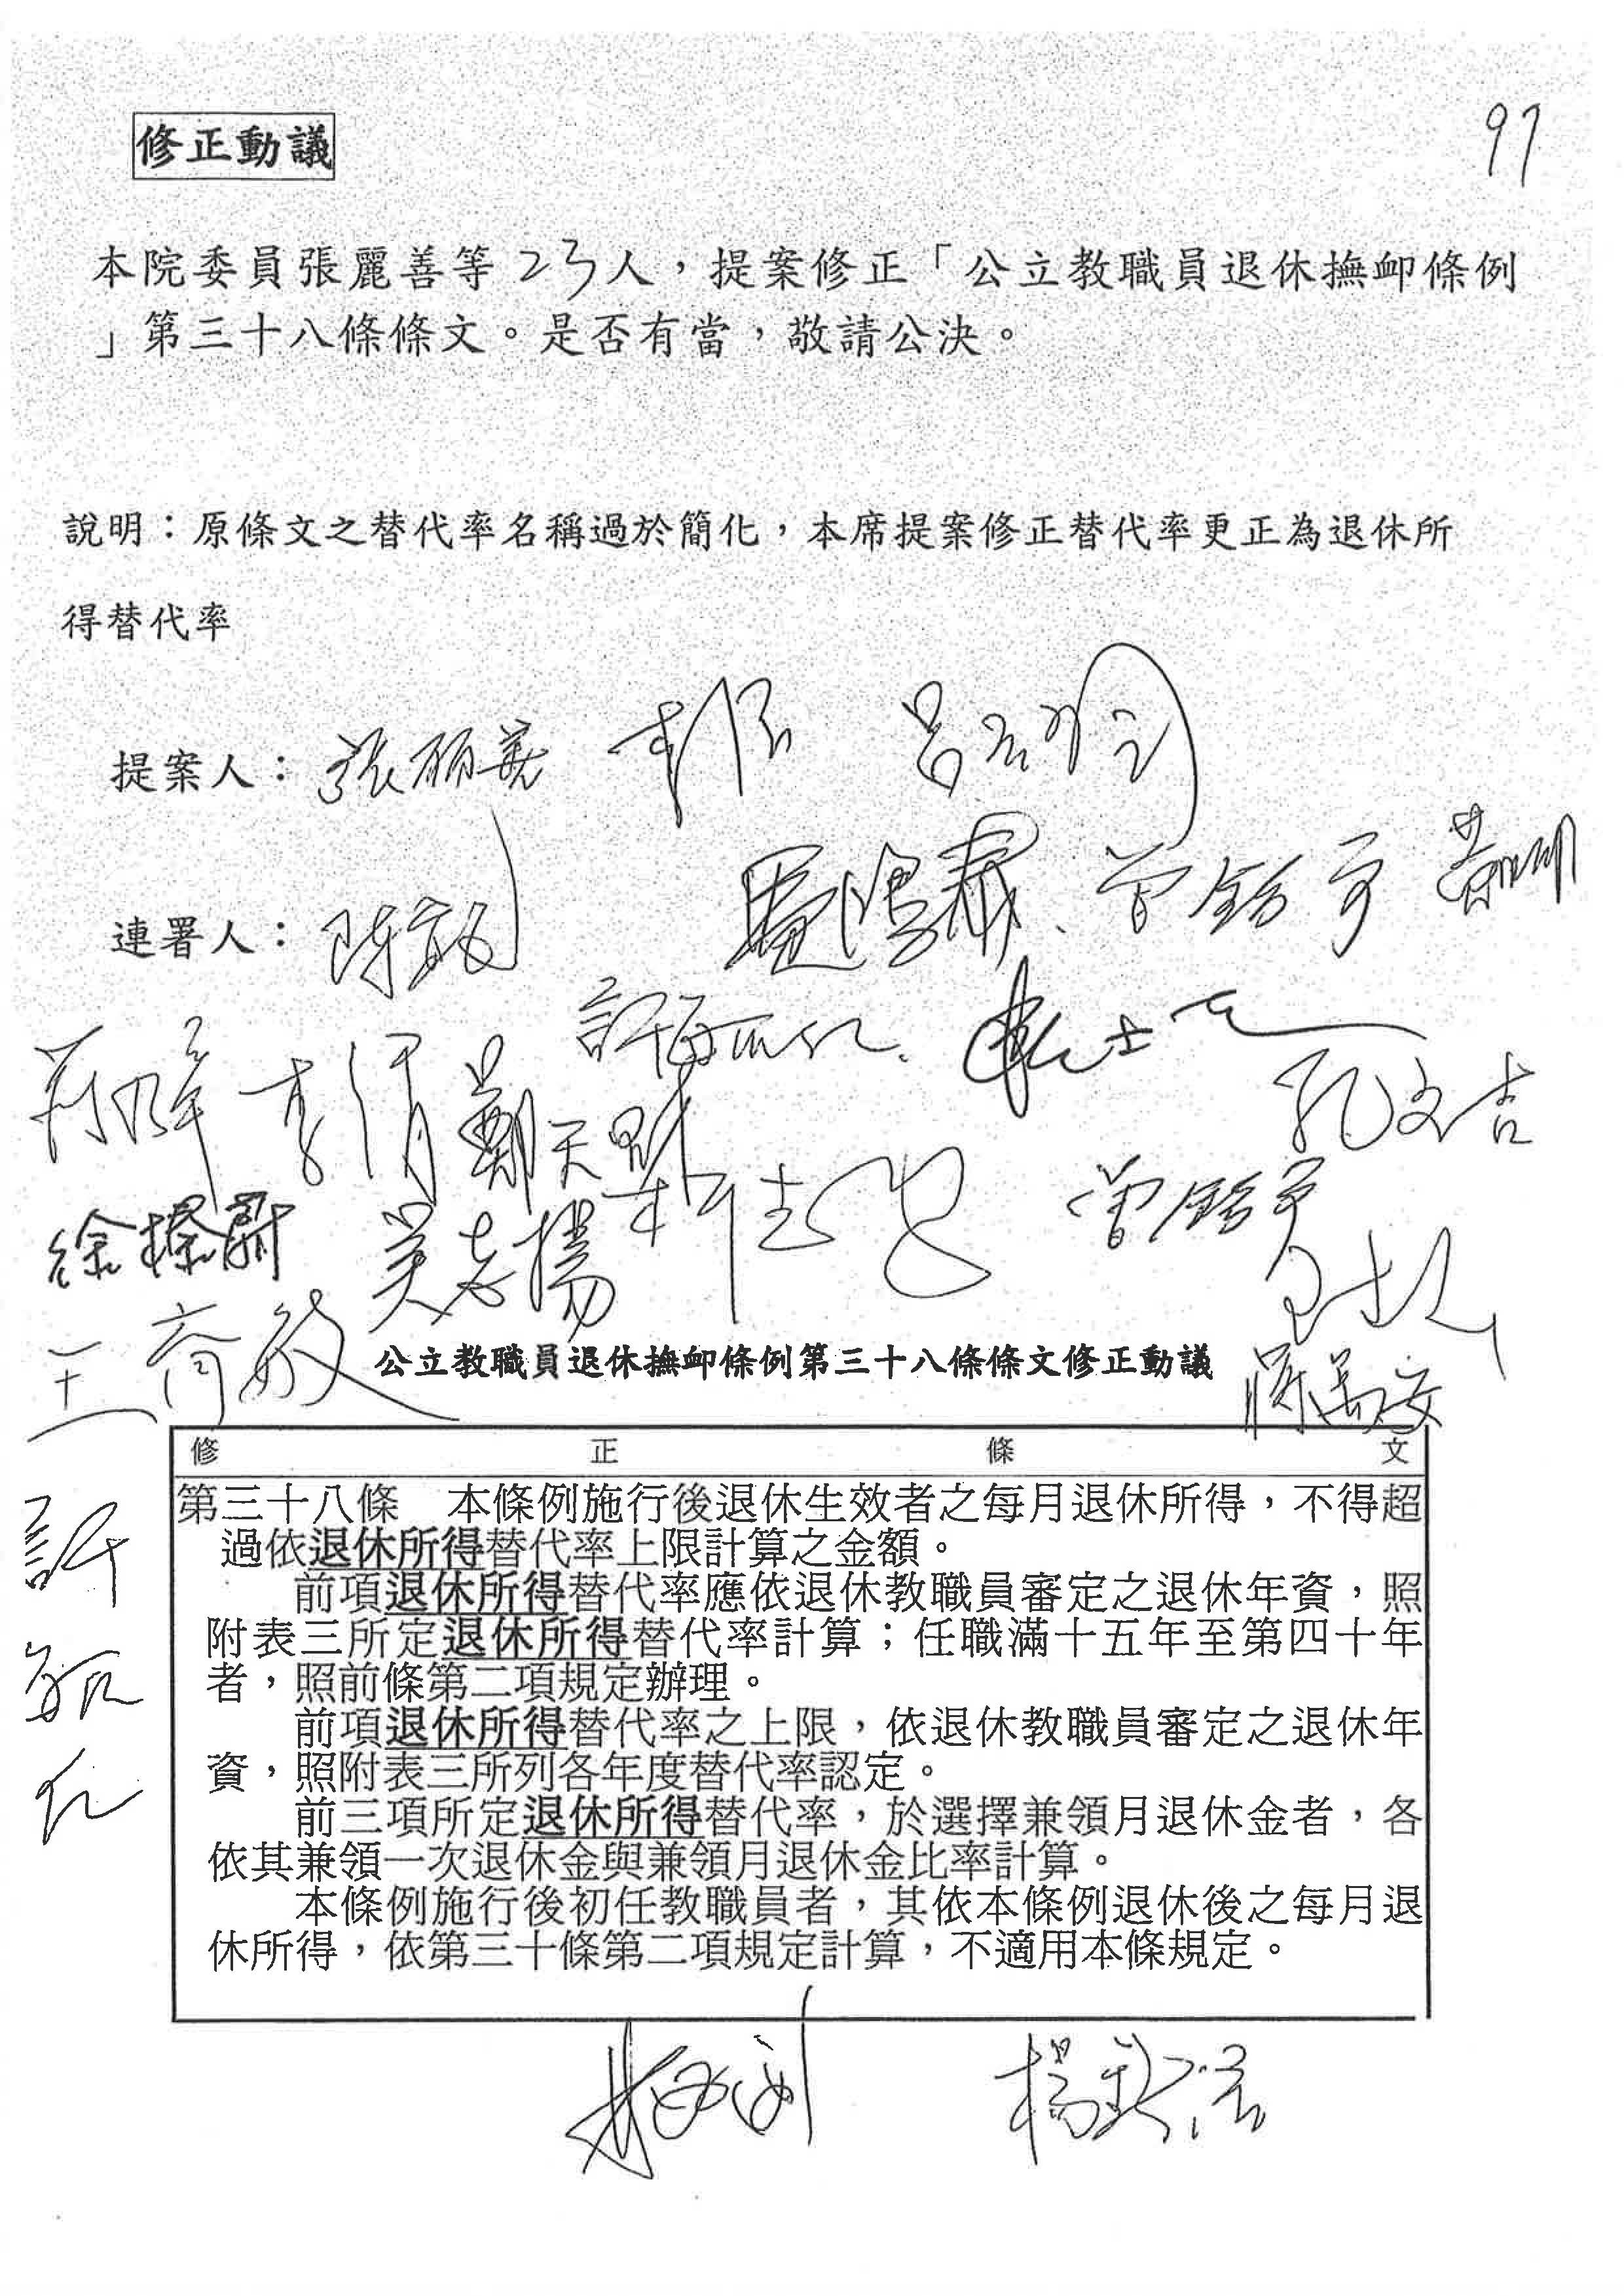 修正動議
97
本院委員張麗善等23人，提案修正「公立教職員退休撫卹條例
」第三十八條條文。是否有當，敬請公決。
說明：原條文之替代率名稱過於簡化，本席提案修正替代率更正為退休所
得替代率
提案人：張麗善
連署人：
曾銘宗
孔文吉
鄭天財
徐榛蔚 吳志揚
曾銘宗
王育敏
蔣萬安
公立教職員退休撫卹條例第三十八條條文修正動議
修正條文
第三十八條　本條例施行後退休生效者之每月退休所得，不得超
過依退休所得替代率上限計算之金額。
前項退休所得替代率應依退休教職員審定之退休年資，照
附表三所定退休所得替代率計算；任職滿十五年至第四十年
者，照前條第二項規定辦理。
前項退休所得替代率之上限，依退休教職員審定之退休年
資，照附表三所列各年度替代率認定。
前三項所定退休所得替代率，於選擇兼領月退休金者，各
依其兼領一次退休金與兼領月退休金比率計算。
本條例施行後初任教職員者，其依本條例退休後之每月退
休所得，依第三十條第二項規定計算，不適用本條規定。
許
毓
仁